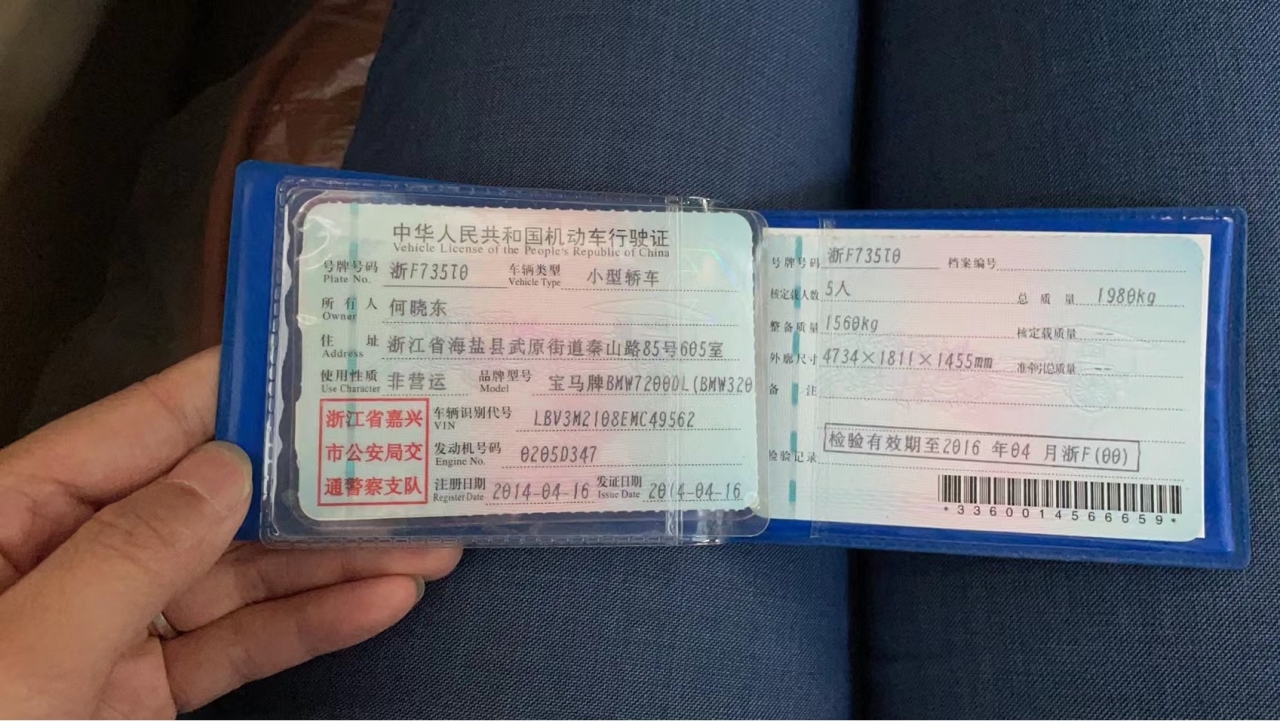 中华人民共和国机动车行驶证
Vehicle License of the People's Republic of China
号牌号码 浙F735T0 车辆类型 小型轿车
Plate No. Vehicle Type
所有人 何晓东
Owner
住址 浙江省海盐县武原街道秦山路85号605室
Address
使用性质 非营运 品牌型号 宝马牌BMW7200DL(BMW320
Use Character Model
浙江省嘉兴
市公安局交
通警察支队
车辆识别代号 LBV3M2108EMC49562
VIN
发动机号码 0205D347
Engine No.
注册日期 2014-04-16 发证日期 2014-04-16
Register Date Issue Date
号牌号码 浙F735T0 档案编号
核定载人数 5人 总质量 1980kg
整备质量 1560kg 核定载质量 --
外廓尺寸 4734×1811×1455mm 准牵引总质量 --
备注
检验有效期至2016 年04 月浙F(00)
检验记录
*3360014566659*